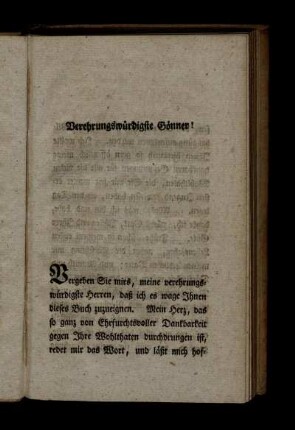 Verehrungswürdigste Gönner!
Vergeben Sie mirs, meine verehrungs-
würdigste Herren, daß ich es wage Ihnen
dieses Buch zuzueignen. Mein Herz, das
so ganz von Ehrfurchtsvoller Dankbarkeit
gegen Ihre Wohlthaten durchdrungen ist,
redet mir das Wort, und läßt mich hof-